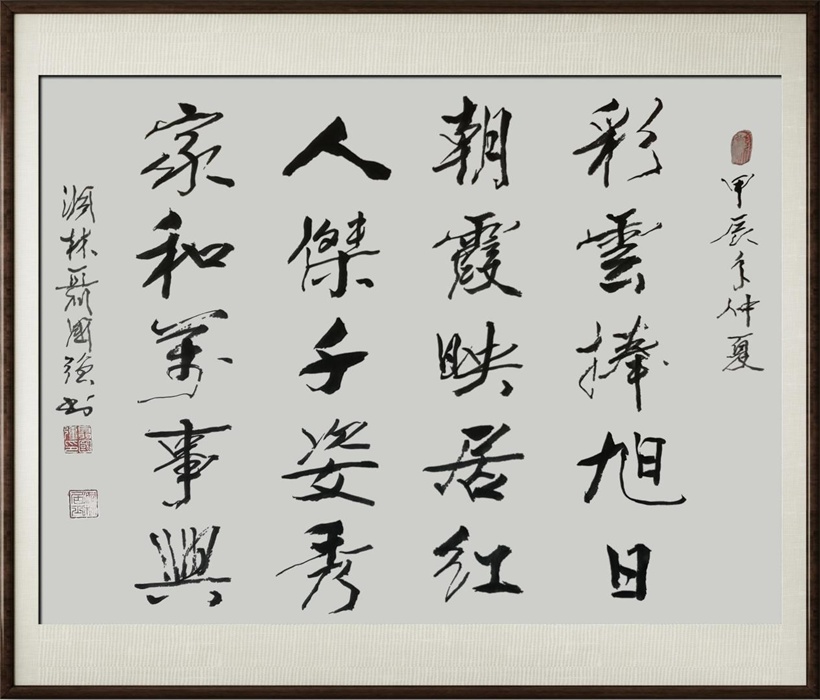 甲辰年仲夏
彩雲捧旭日
朝霞映居紅
人傑千姿秀
家和萬事興
須林聶國強书